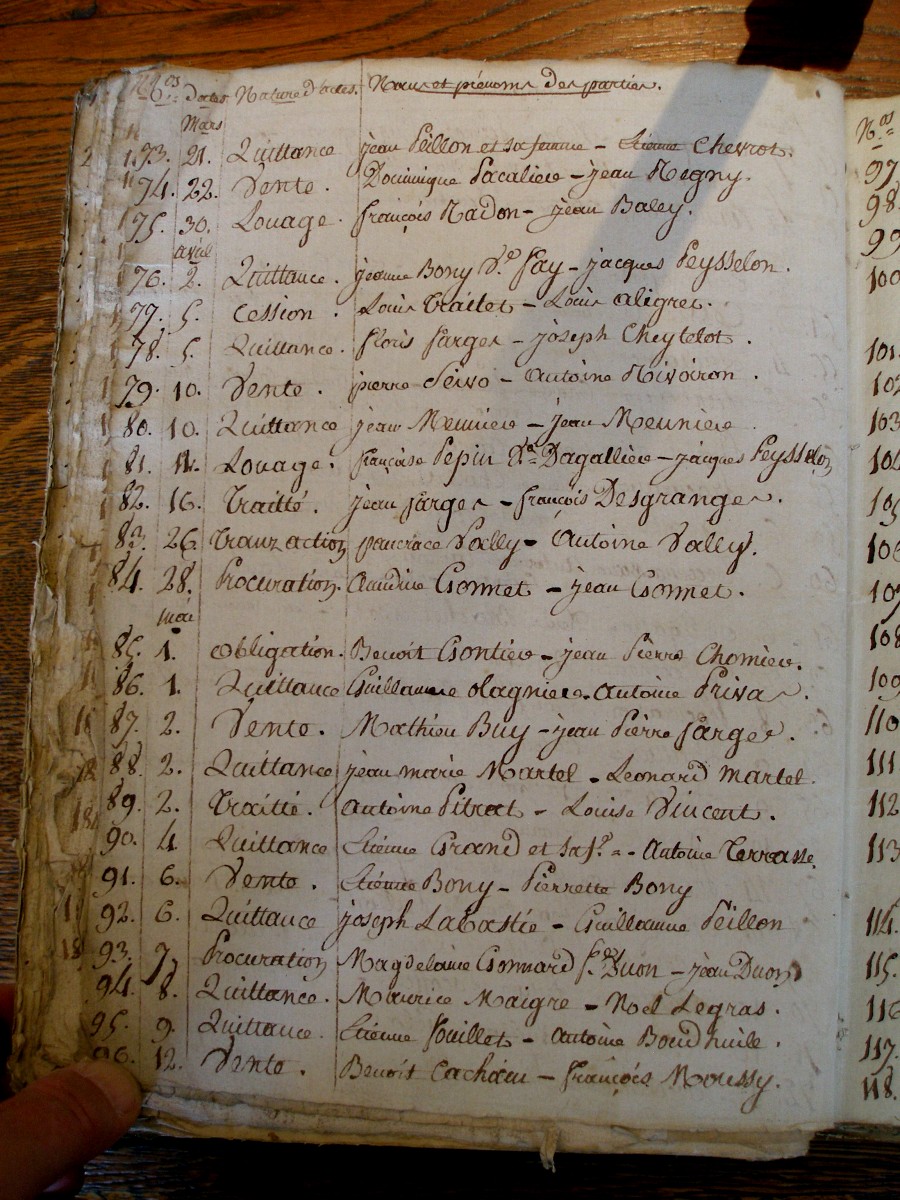 N.os Dates Nature d'actes. Noms et prénoms des parties.
Mars
73. 21. Quittance jean Peillon et sa femme - Etienne Chevrot.
74. 22. Vente. Dominique Pacaliere - jean Negny.
75. 30. Louage. françois Nadon - jean Baley.
avril
76. 2. Quittance. jeanne Bony V.e Fay - jacques Peysselon.
77. 5. Cession. Louis Traitet - Louis aligret.
78. 5. Quittance. floris farges - joseph Cheytelot.
79. 10. Vente. pierre Seivo - Antoine Nivoiron.
80. 10. Quittance jean Meuniere - jean Meuniere
81. 11. Louage. françoise Pepin V.e Dagalliere - jacques Peysselon
82. 16. Traitté. jean farges - françois Desgranges.
83. 26. Tranzaction pancrace Vally - Antoine Vally.
84. 28. Procuration. Claudine Gonnet - jean Gonnet.
mai
85. 1. Obligation. Benoit Gontier - jean Pierre Chomier.
86. 1. Quittance Guillaume Magnier - Antoine Privas.
87. 2. Vente. Mathieu Buy - jean Pierre farges.
88. 2. Quittance jean marie Martel - Leonard martel.
89. 2. Traitté. antoine Pitrat - Louise Vincent.
90. 4. Quittance Etienne Grand et sa f.e - Antoine Terrasse.
91. 6. Vente. Etienne Bony - Pierrette Bony
92. 6. Quittance joseph Labastie - Guillaume Peillon
93. 7. Procuration Magdelaine Gonnard f.e Duon - jean Duon
94. 8. Quittance. Maurice Maigre - Noel Legras.
95. 9. Quittance. Etienne Pouillet - Antoine Boudhuile.
96. 12. Vente. Benoit Cachieu - françois Moussy.
N.os
97
98
99
100
101
102
103
104
105
106
107
108
109
110
111
112
113
114.
115.
116
117.
118.